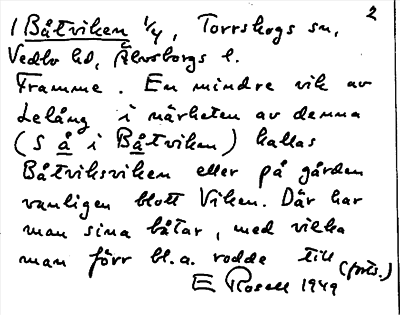 2
1 Båtviken 1/4, Torrskogs sn,
Vedbo hd, Älvsborgs l.
Framme. En mindre vik av
Lelång i närheten av denna
(S å i Båtviken) kallas
Båtviksviken eller på gården
vanligen blott Viken. Där har
man sina båtar, med vilka
man förr bl.a. rodde till (forts.)
E Rosell 1949